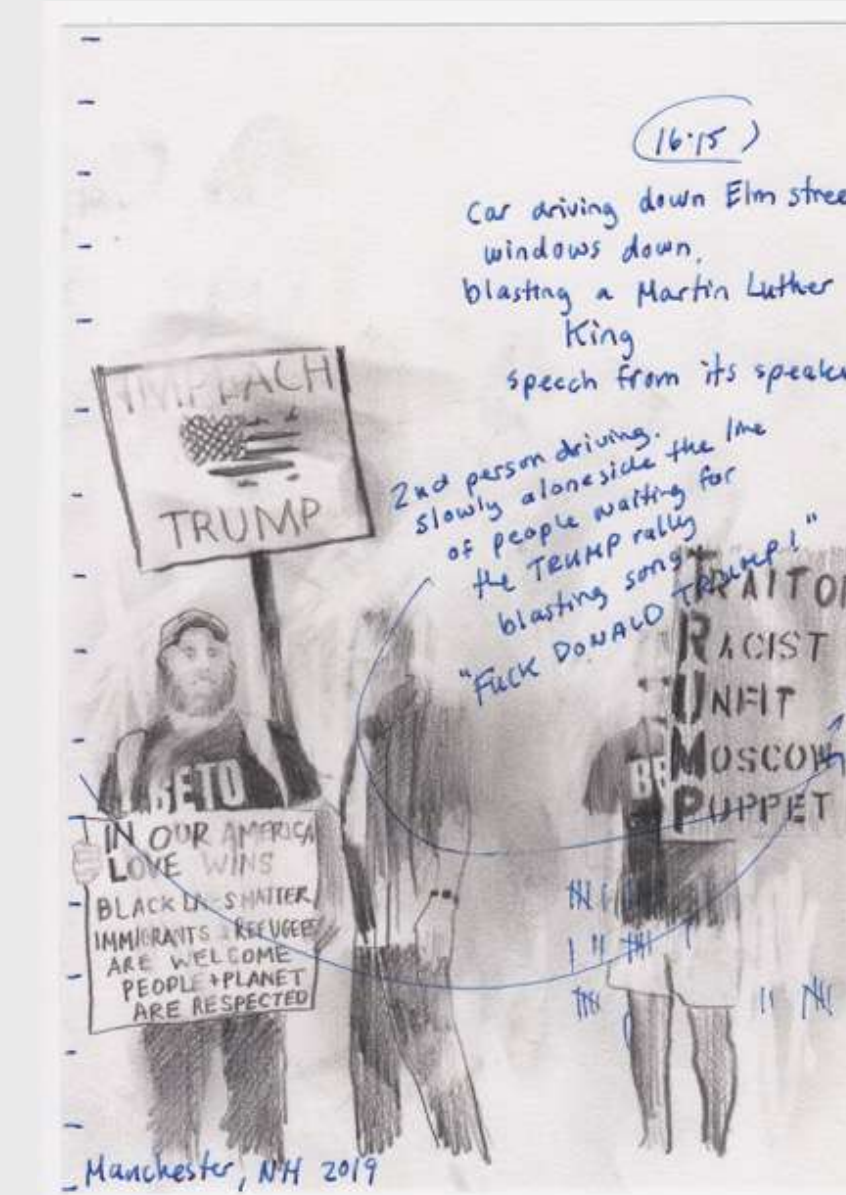 16:15
Car driving down Elm stree
windows down,
blasting a Martin Luther
King
speech from its speake
2nd person driving.
slowly aloneside the line
of people waiting for
the TRUMP rally
blasting song
"FUCK DONALD TRUMP!"
IMPEACH
TRUMP
BETO
IN OUR AMERICA
LOVE WINS
BLACK LI SMATTER
IMMIGRANTS & REFUGEES
ARE WELCOME
PEOPLE + PLANET
ARE RESPECTED
TRAITOR
RACIST
UNFIT
MOSCOW
PUPPET
BE
Manchester, NH 2019